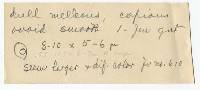 dull yellowish, copious
ovoid smooth 1-few gut
8-10 x 5-6 µ
Seem larger & dif. color fr no. 610